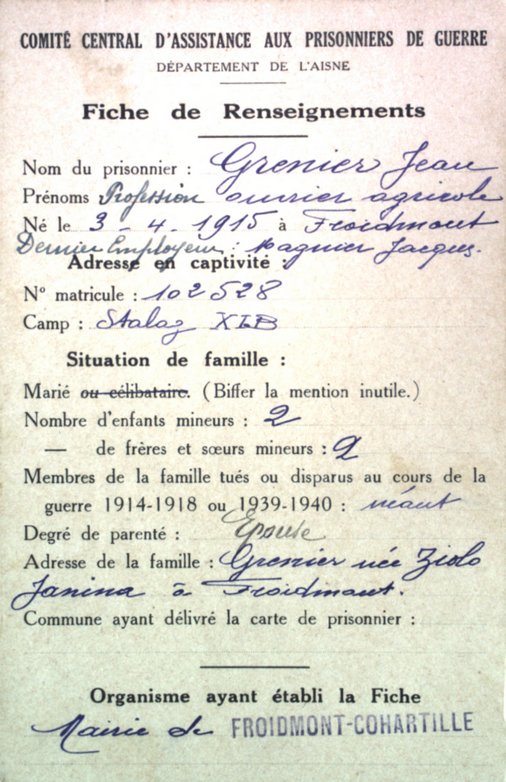 COMITÉ CENTRAL D'ASSISTANCE AUX PRISONNIERS DE GUERRE
DÉPARTEMENT DE L'AISNE
Fiche de Renseignements
Nom du prisonnier : Grenier Jean
Prénoms Profession ouvrier agricole
Né le 3-4-1915 à Froidmont
Dernier Employeur : Magnier Jacques.
Adresse en captivité :
N° matricule : 102528
Camp : Stalag XIB
Situation de famille :
Marié ou célibataire. (Biffer la mention inutile.)
Nombre d'enfants mineurs : 2
— de frères et sœurs mineurs : 2
Membres de la famille tués ou disparus au cours de la
guerre 1914-1918 ou 1939-1940 : néant
Degré de parenté : Epouse
Adresse de la famille : Grenier née Ziolo
Janina à Froidmont.
Commune ayant délivré la carte de prisonnier :
Organisme ayant établi la Fiche
Mairie de FROIDMONT-COHARTILLE